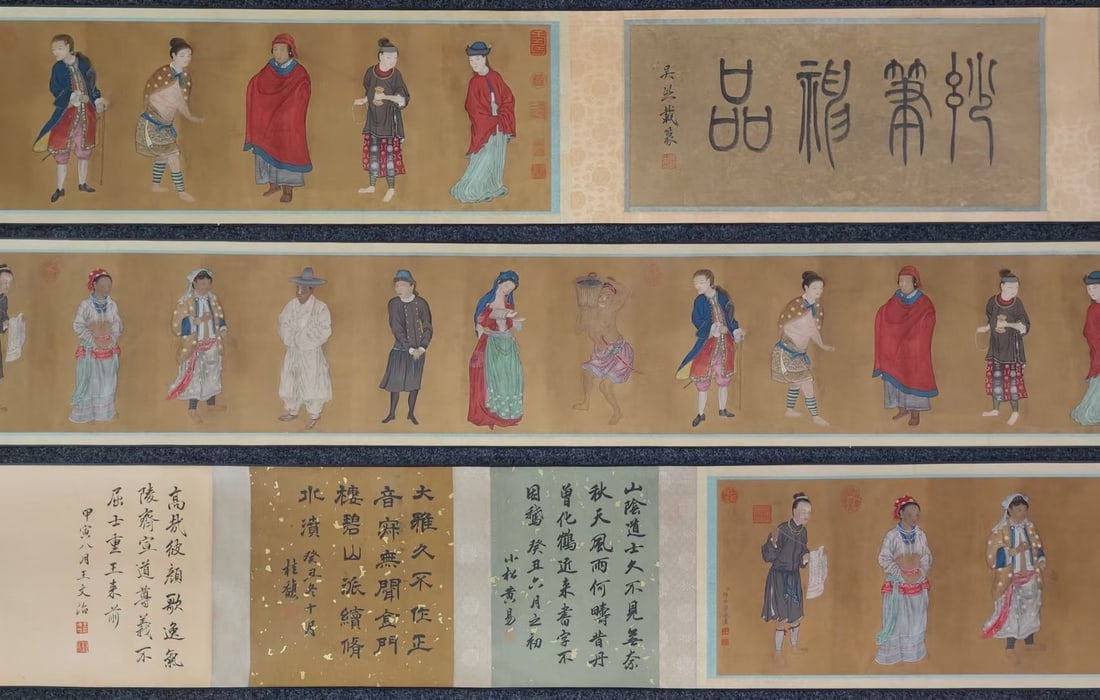 妙筆神品
吳熙載篆
山陰道士久不見無奈
秋天風雨何疇昔丹
曾化鶴近来書字不
因鵞 癸丑六月之初
小松黄易
大雅久不作正
音寂無聞金門
棲碧山派續脩
水瀆 癸丑冬十月
桂馥
高哉彼顔歌逸氣
陵齊宣道尊義不
屈士重王来前
甲寅八月王文治